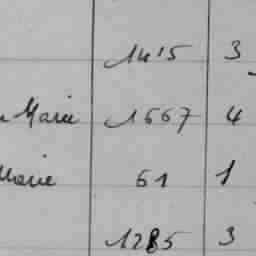 1415 3
Marie 1667 4
Marie 61 1
1285 3